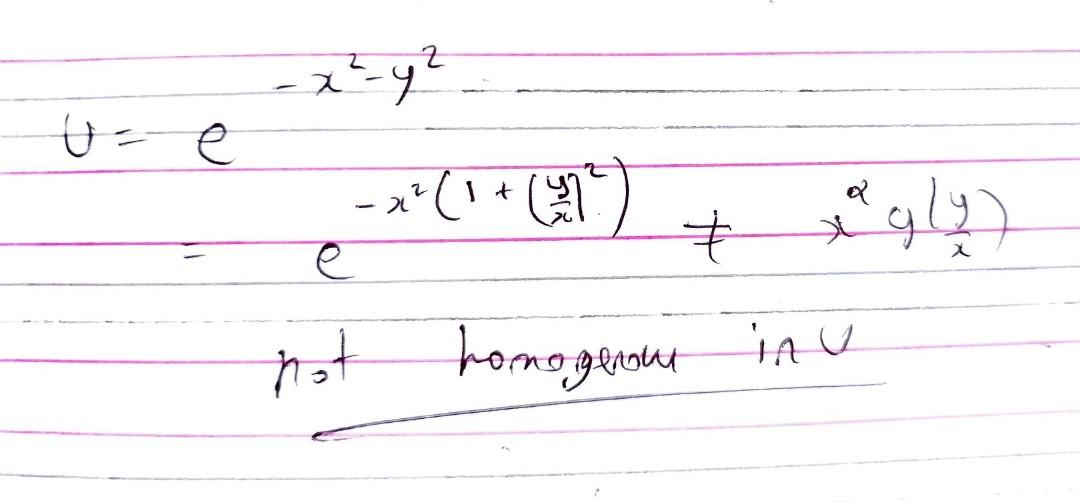 U = e^{-x^2-y^2}
= e^{-x^2(1+(y/x)^2)} ≠ x^α g(y/x)
not homogenous in U